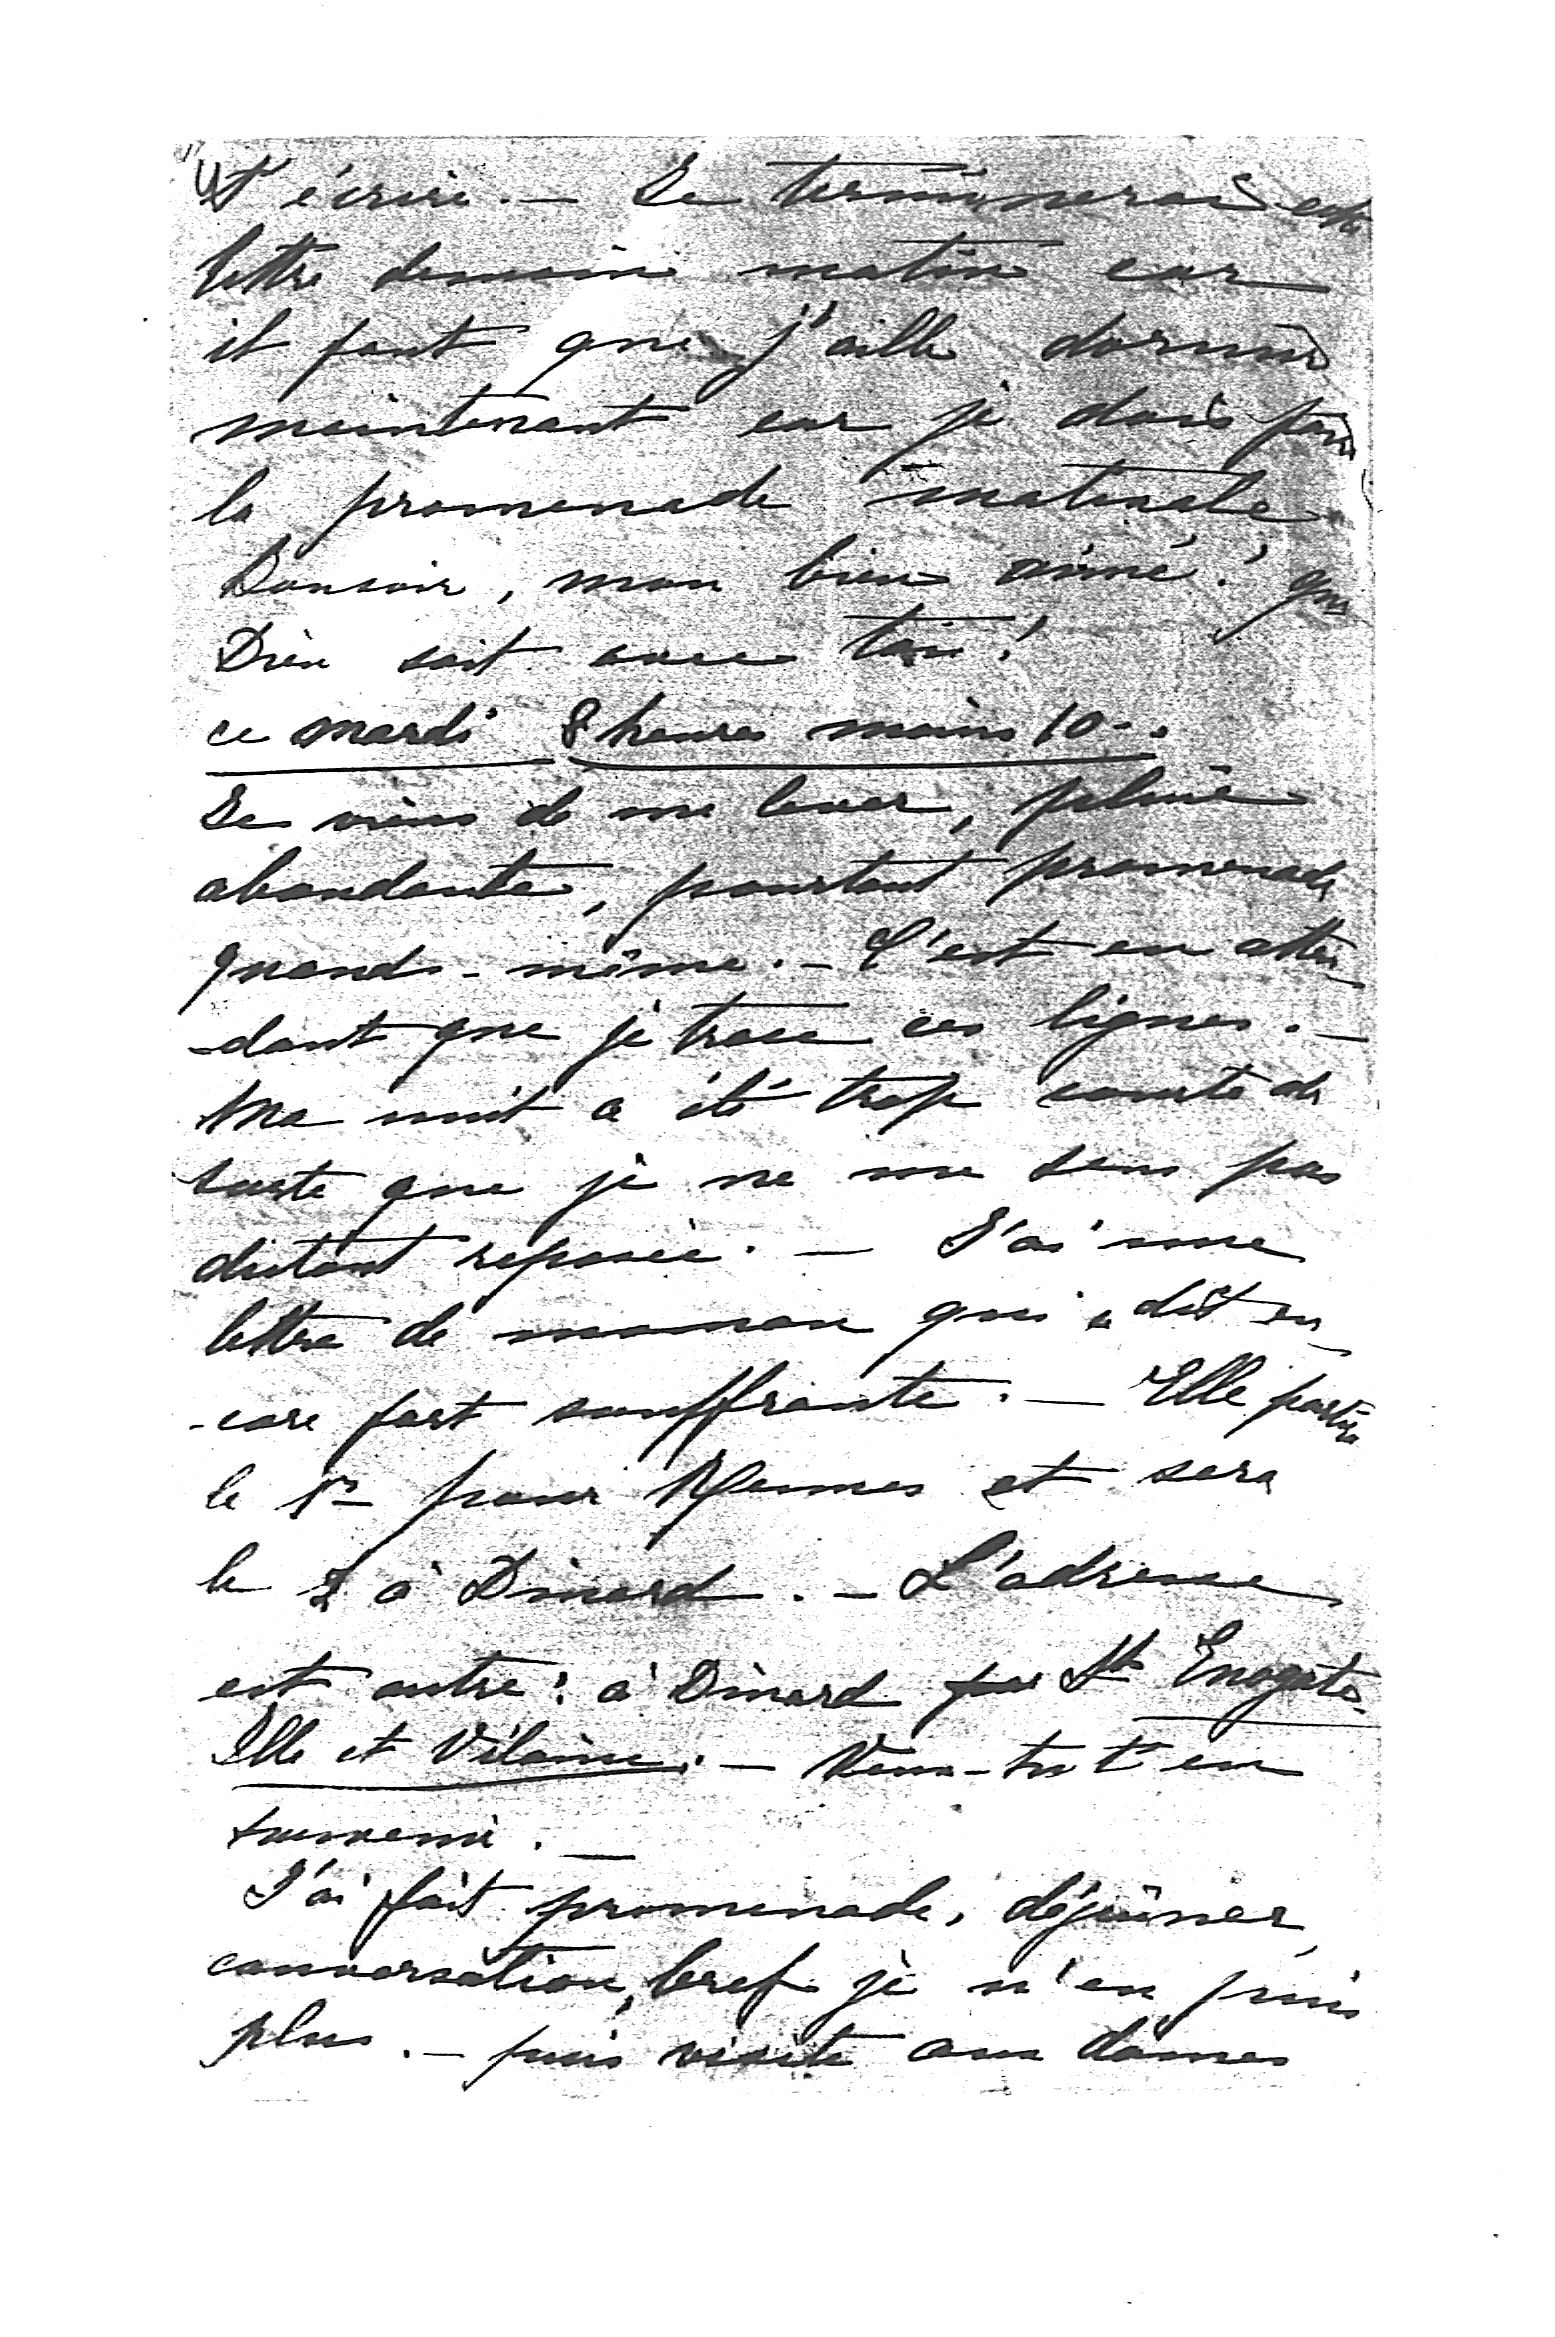 t'écrire. — Je terminerai cette
lettre demain matin car
il faut que j'aille dormir
maintenant car je dois faire
la promenade matinale.
Bonsoir, mon bien aimé! que
Dieu soit avec toi!
ce mardi 8 heures moins 10 —.
Je viens de me lever, pluie
abondante, pourtant promenade
quand-même. — C'est en atten-
-dant que je trace ces lignes. —
Ma nuit a été trop courte de
sorte que je ne me sens pas
reposée. — J'ai une
lettre de maman qui se dit en-
-core fort souffrante. — Elle partira
le 1er pour Rennes et sera
le 2 à Dinard. — L'adresse
est autre: à Dinard par St Enogate
Ille et Vilaine. — Veux-tu t'en
souvenir. —
J'ai fait promenade, déjeûner,
conversation, bref je n'en puis
plus. — puis visite aux dames